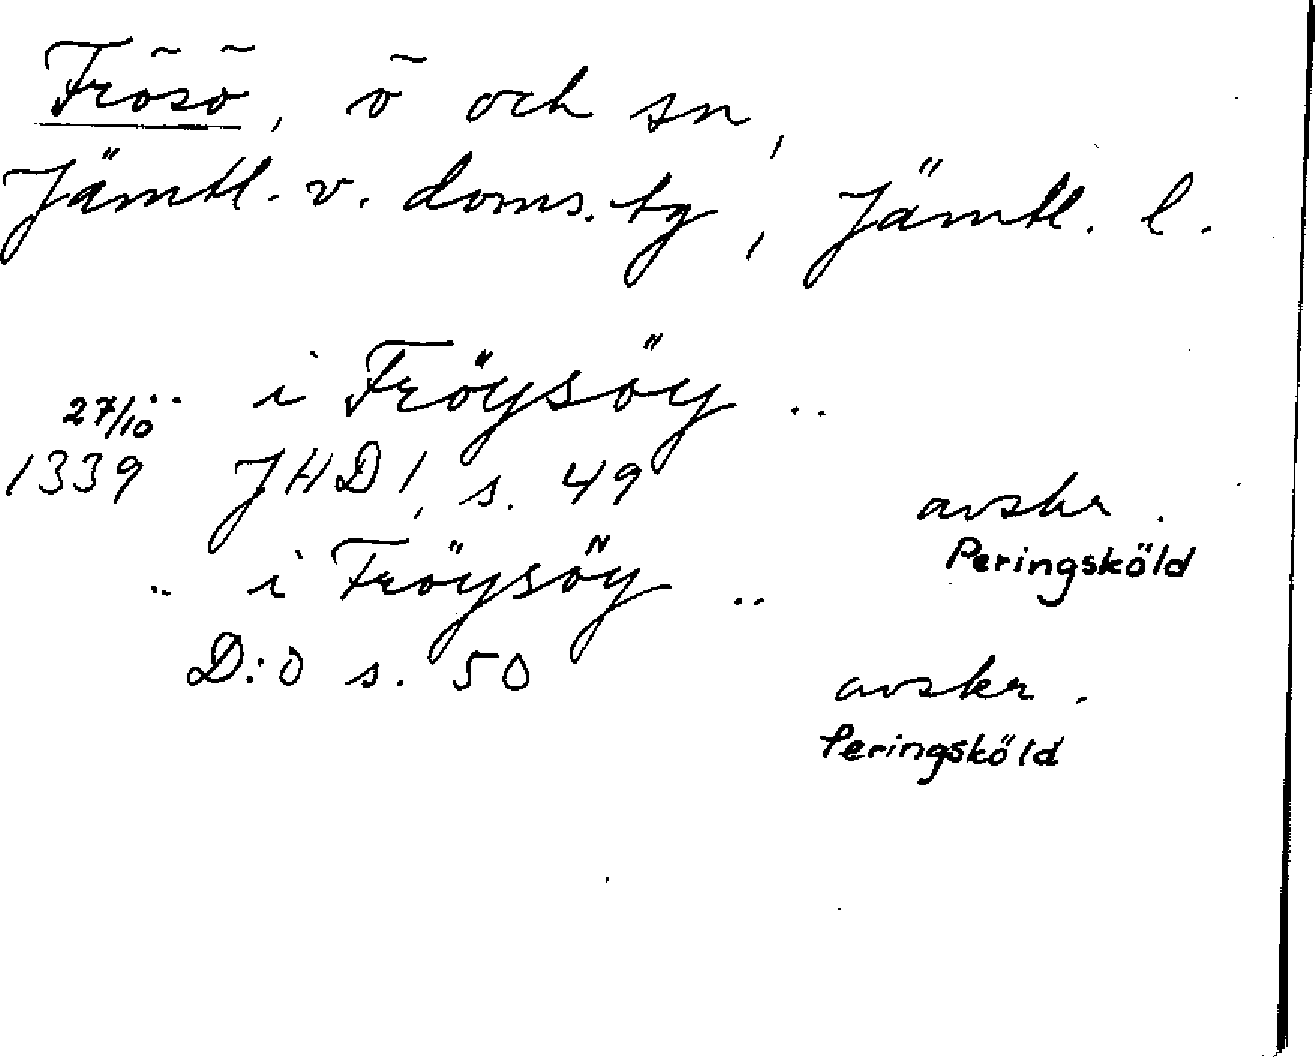 Frösö, ö och sn,
Jämtl. v. doms. tg, Jämtl. l.
27/10 .. i Fröysöy ..
1339 JHD 1, s. 49 avskr.
Peringsköld
.. i Fröysöy ..
D:o s. 50 avskr.
Peringsköld